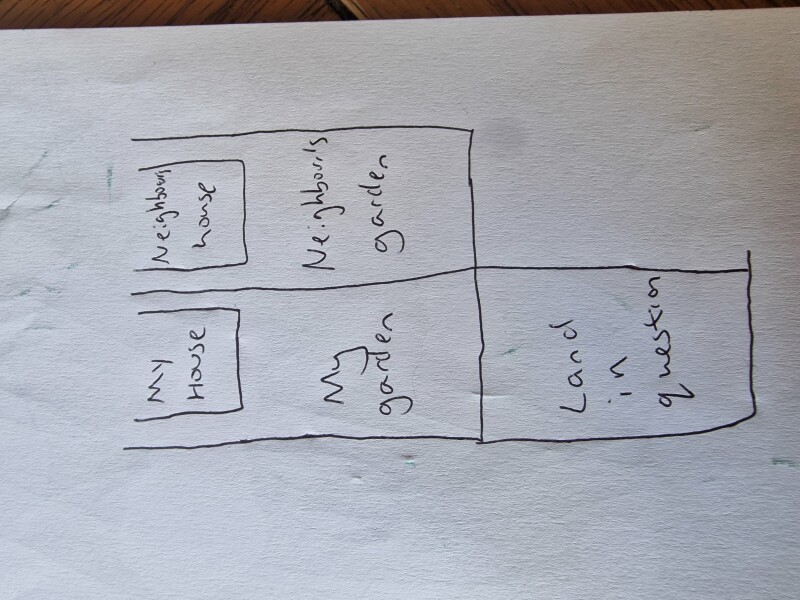 My
House
My
garden
Land
in
question
Neighbours
house
Neighbour's
garden